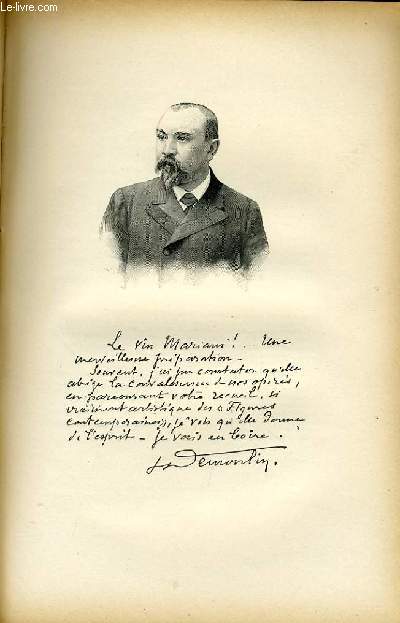 Le-livre.com
Le Vin Mariani ! Une
merveilleuse préparation –
Souvent, j'ai pu constater qu'elle
abrège la convalescence de nos opérés,
en parcourant votre recueil, si
vraiment artistique des « Figures
contemporaines », je vois qu'elle donne
de l'esprit – je vais en boire.
Demoulin.